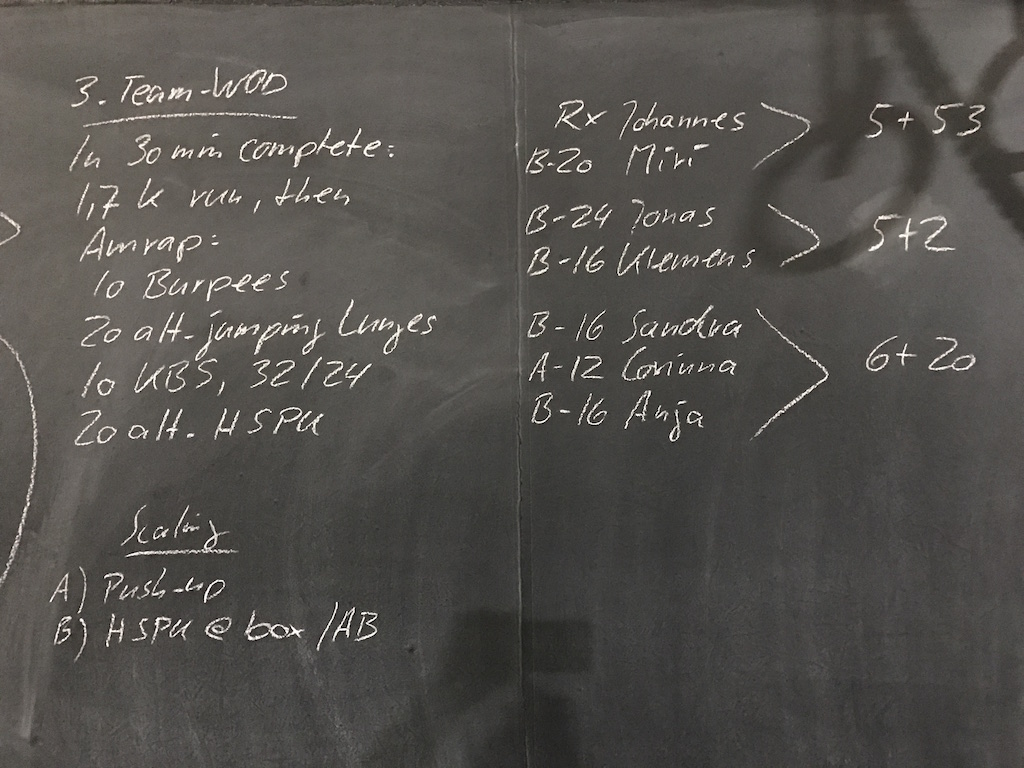 3. Team-WOD
In 30 min complete:
1,7 k run, then
Amrap:
10 Burpees
20 alt. jumping Lunges
10 KBS, 32/24
20 alt. HSPU
Scaling
A) Push-up
B) HSPU @ box /AB
Rx Johannes
B-20 Miri
5 + 53
B-24 Jonas
B-16 Klemens
5+2
B-16 Sandra
A-12 Corinna
B-16 Anja
6+20